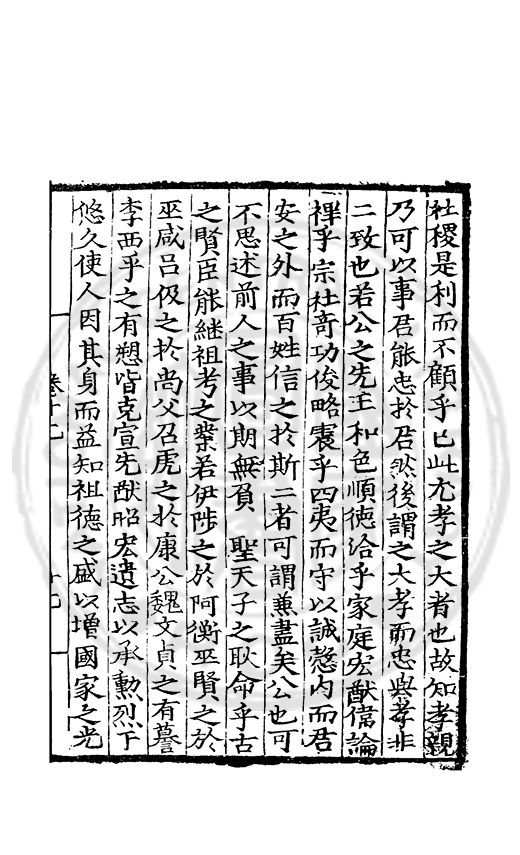 社稷是利而不顧乎已此尤孝之大者也故知孝親
乃可以事君能忠於君然後謂之大孝而忠與孝非
二致也若公之先王和色順德洽乎家庭宏猷偉論
裨乎宗社奇功俊略震乎四夷而守以誠慤内而君
安之外而百姓信之於斯二者可謂兼盡矣公也可
不思述前人之事以期無負聖天子之耿命乎古
之賢臣能継祖考之業若伊陟之於阿衡巫賢之於
巫咸呂伋之於尚父召虎之於康公魏文貞之有謩
李西平之有愬皆克宣先猷昭宏遺志以承勲烈于
悠久使人因其身而益知祖德之盛以增國家之光
卷十九
十七